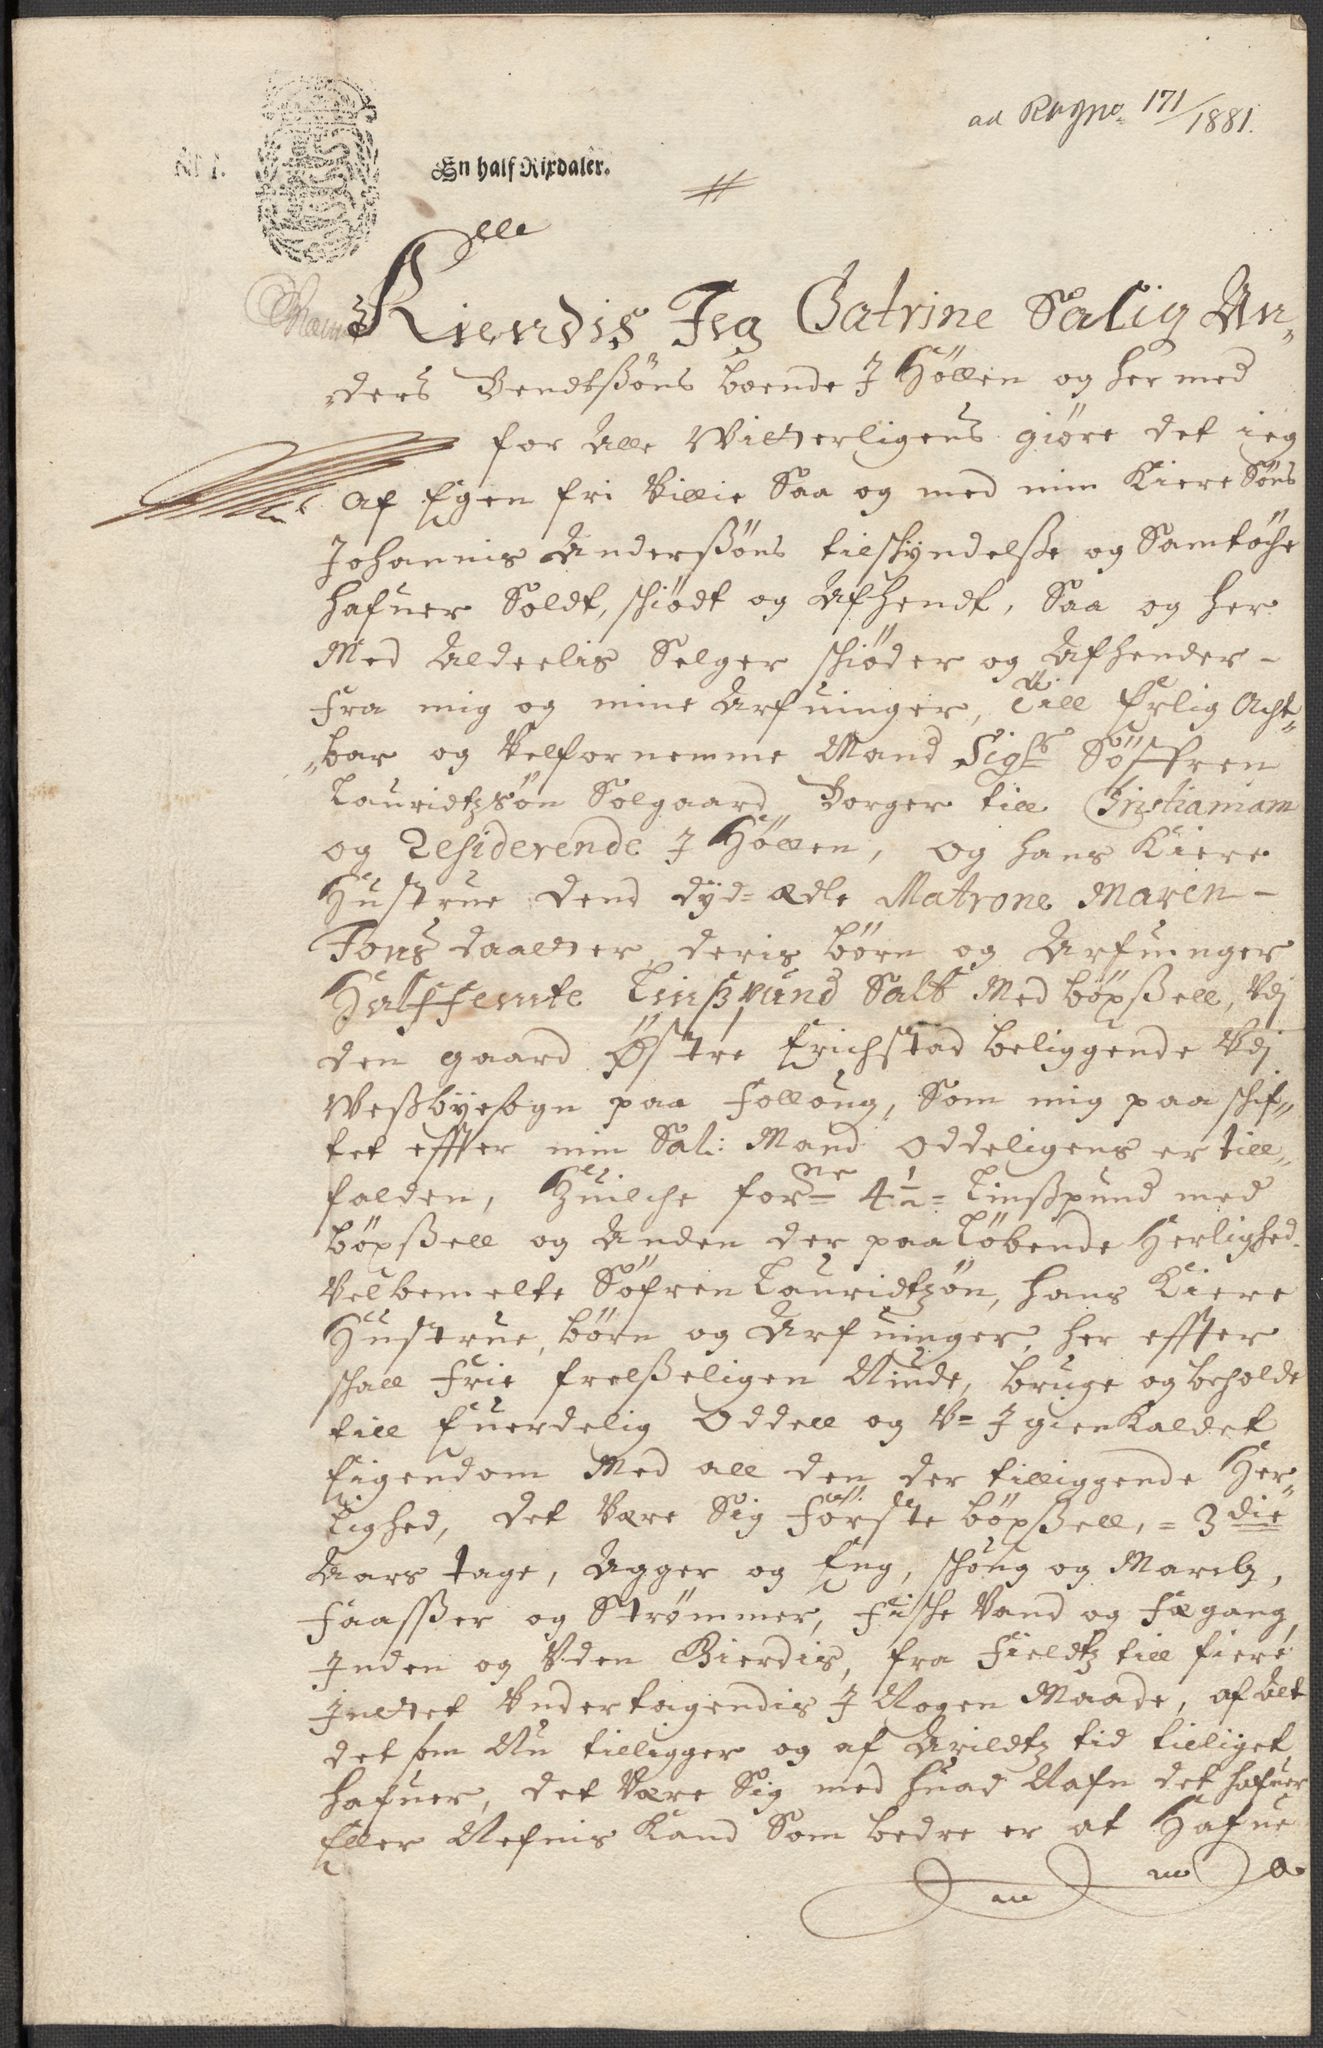 ad Rygno. 171/1881.
No 1. En half Rixdaler.
Kiendis Jeg Catrine Salig An„
„ders Bendtßøns boende J Høllen og her med
for Alle Witterligens giøre det ieg
af Egen fri Villie Saa og med min Kiere Søns
Johannis Anderßøns tilskyndelße og Samtøche
hafuer Soldt, schiødt og Afhendt, Saa og her
Med Aldeelis Selger schiøder og Afhender -
fra mig og mine Arfuinger, Till Erlig Acht„
„bar og Velfornemme Mand Sigr Söffren
Lauridtzsøn Solgaard Borger till Cristianiam
og Residerende J Høllen, og hans Kiere
Hustrue dend dyd=ædle Matrone Maren -
Jons daatter, deris børn og Arfuinger
Halffemte Lißpund Salt Med böxßell, Vdj
den gaard Østre Erichstad beliggende Vdj
Weßbyesogn paa Follöug, Som mig paa schif„
tet effter min Sal: Mand oddeligens er till„
falden, Huilche forne 4½ = Lißpund med
böxßell og Anden der paaløbende Herlighed
Velbemelte Söfren Lauridtzøn, hans Kiere
Hustrue, børn og Arfuinger, her effter
schall frie frelßeligen Niude, bruge og beholde
till Euerdelig Oddell og V= J gienkaldet
Eigendom Med all den der tilliggende Her„
lighed, det Være Sig første böxßell, = 3die
Aars tage, Agger og Eng, schoug og March,
Faaßer og Strømmer, fische Vand og fægang,
Jnden og Vden Gierdis, fra fieldtz till fiere
Jntet Vndertagendis J Nogen Maade, af Alt
det som Nu tilligger og af Arildtz tid tilliget
hafuer, det Være Sig med huad Nafn det hafuer
Eller Nefnis Kand Som bedre er at Hafue